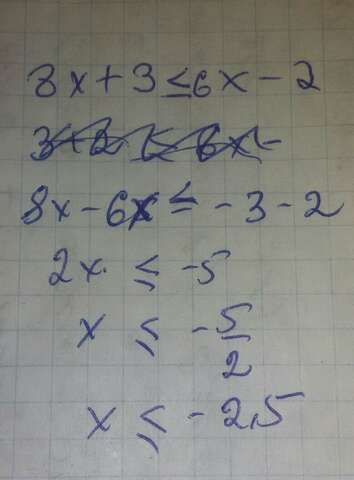 8x + 3 ≤ 6x - 2
8x - 6x ≤ - 3 - 2
2x ≤ -5
x ≤ -5/2
x ≤ - 2,5